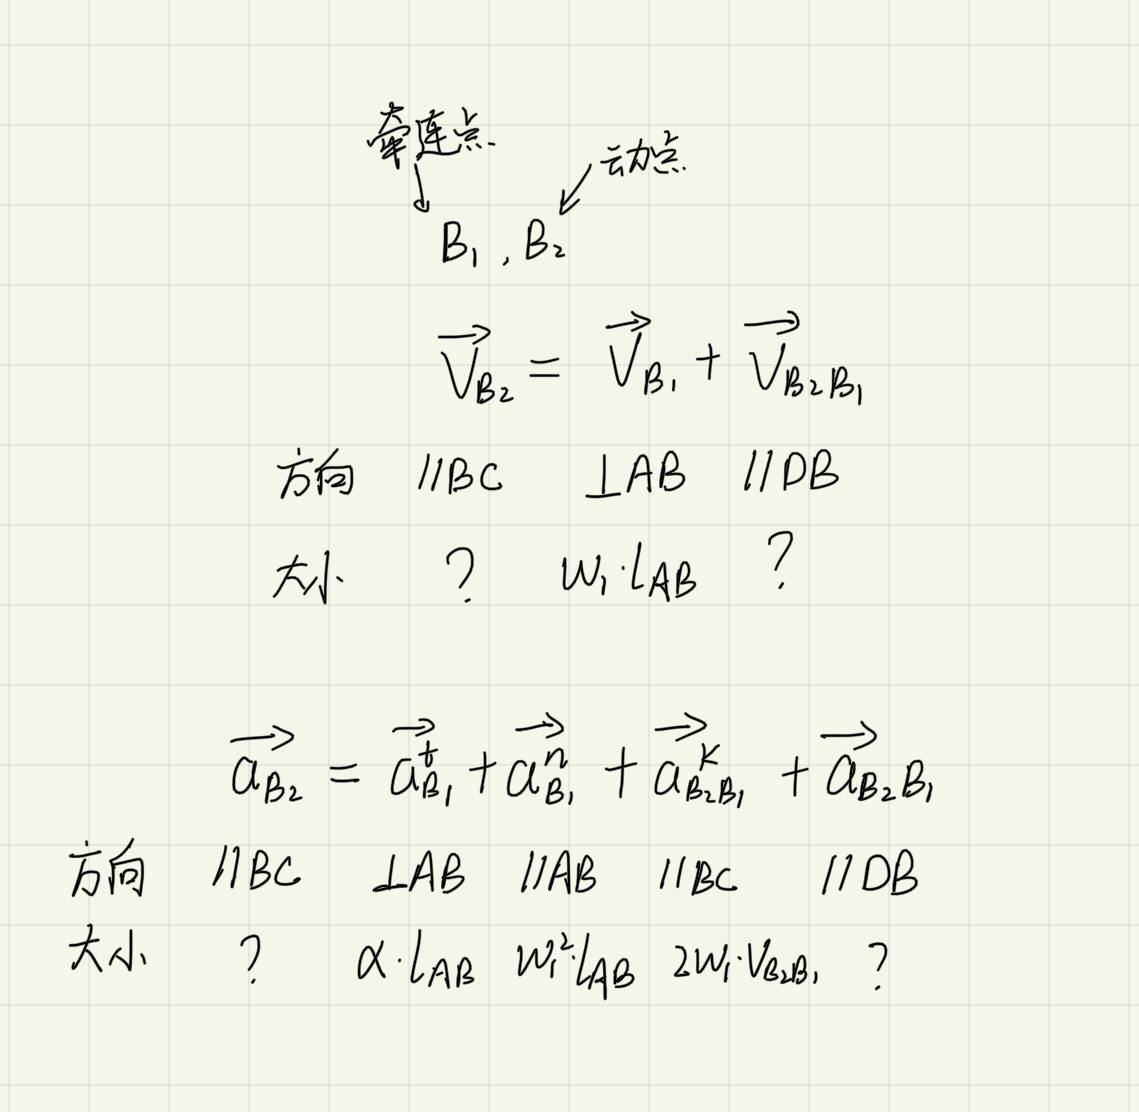 牵连点
动点
B₁ , B₂
V⃗_B₂ = V⃗_B₁ + V⃗_B₂B₁
方向 //BC ⊥AB //DB
大小 ? w₁·l_AB ?
a⃗_B₂ = a⃗ᵗ_B₁ + a⃗ⁿ_B₁ + a⃗ᵏ_B₂B₁ + a⃗_B₂B₁
方向 //BC ⊥AB //AB //BC //DB
大小 ? α·l_AB w₁²·l_AB 2w₁·V_B₂B₁ ?